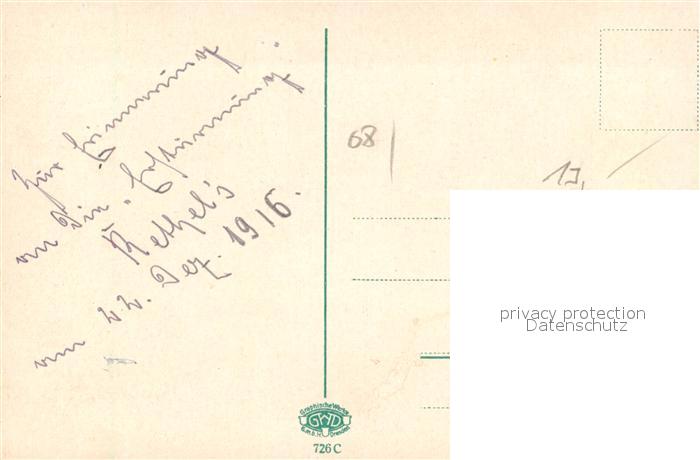 Zur Erinnerung
an die "Erstürmung"
Rethel's
am 22. Dez. 1916.
68
13,
privacy protection
Datenschutz
Graphische Werke
GWD
G.m.b.H. Dresden
726 C